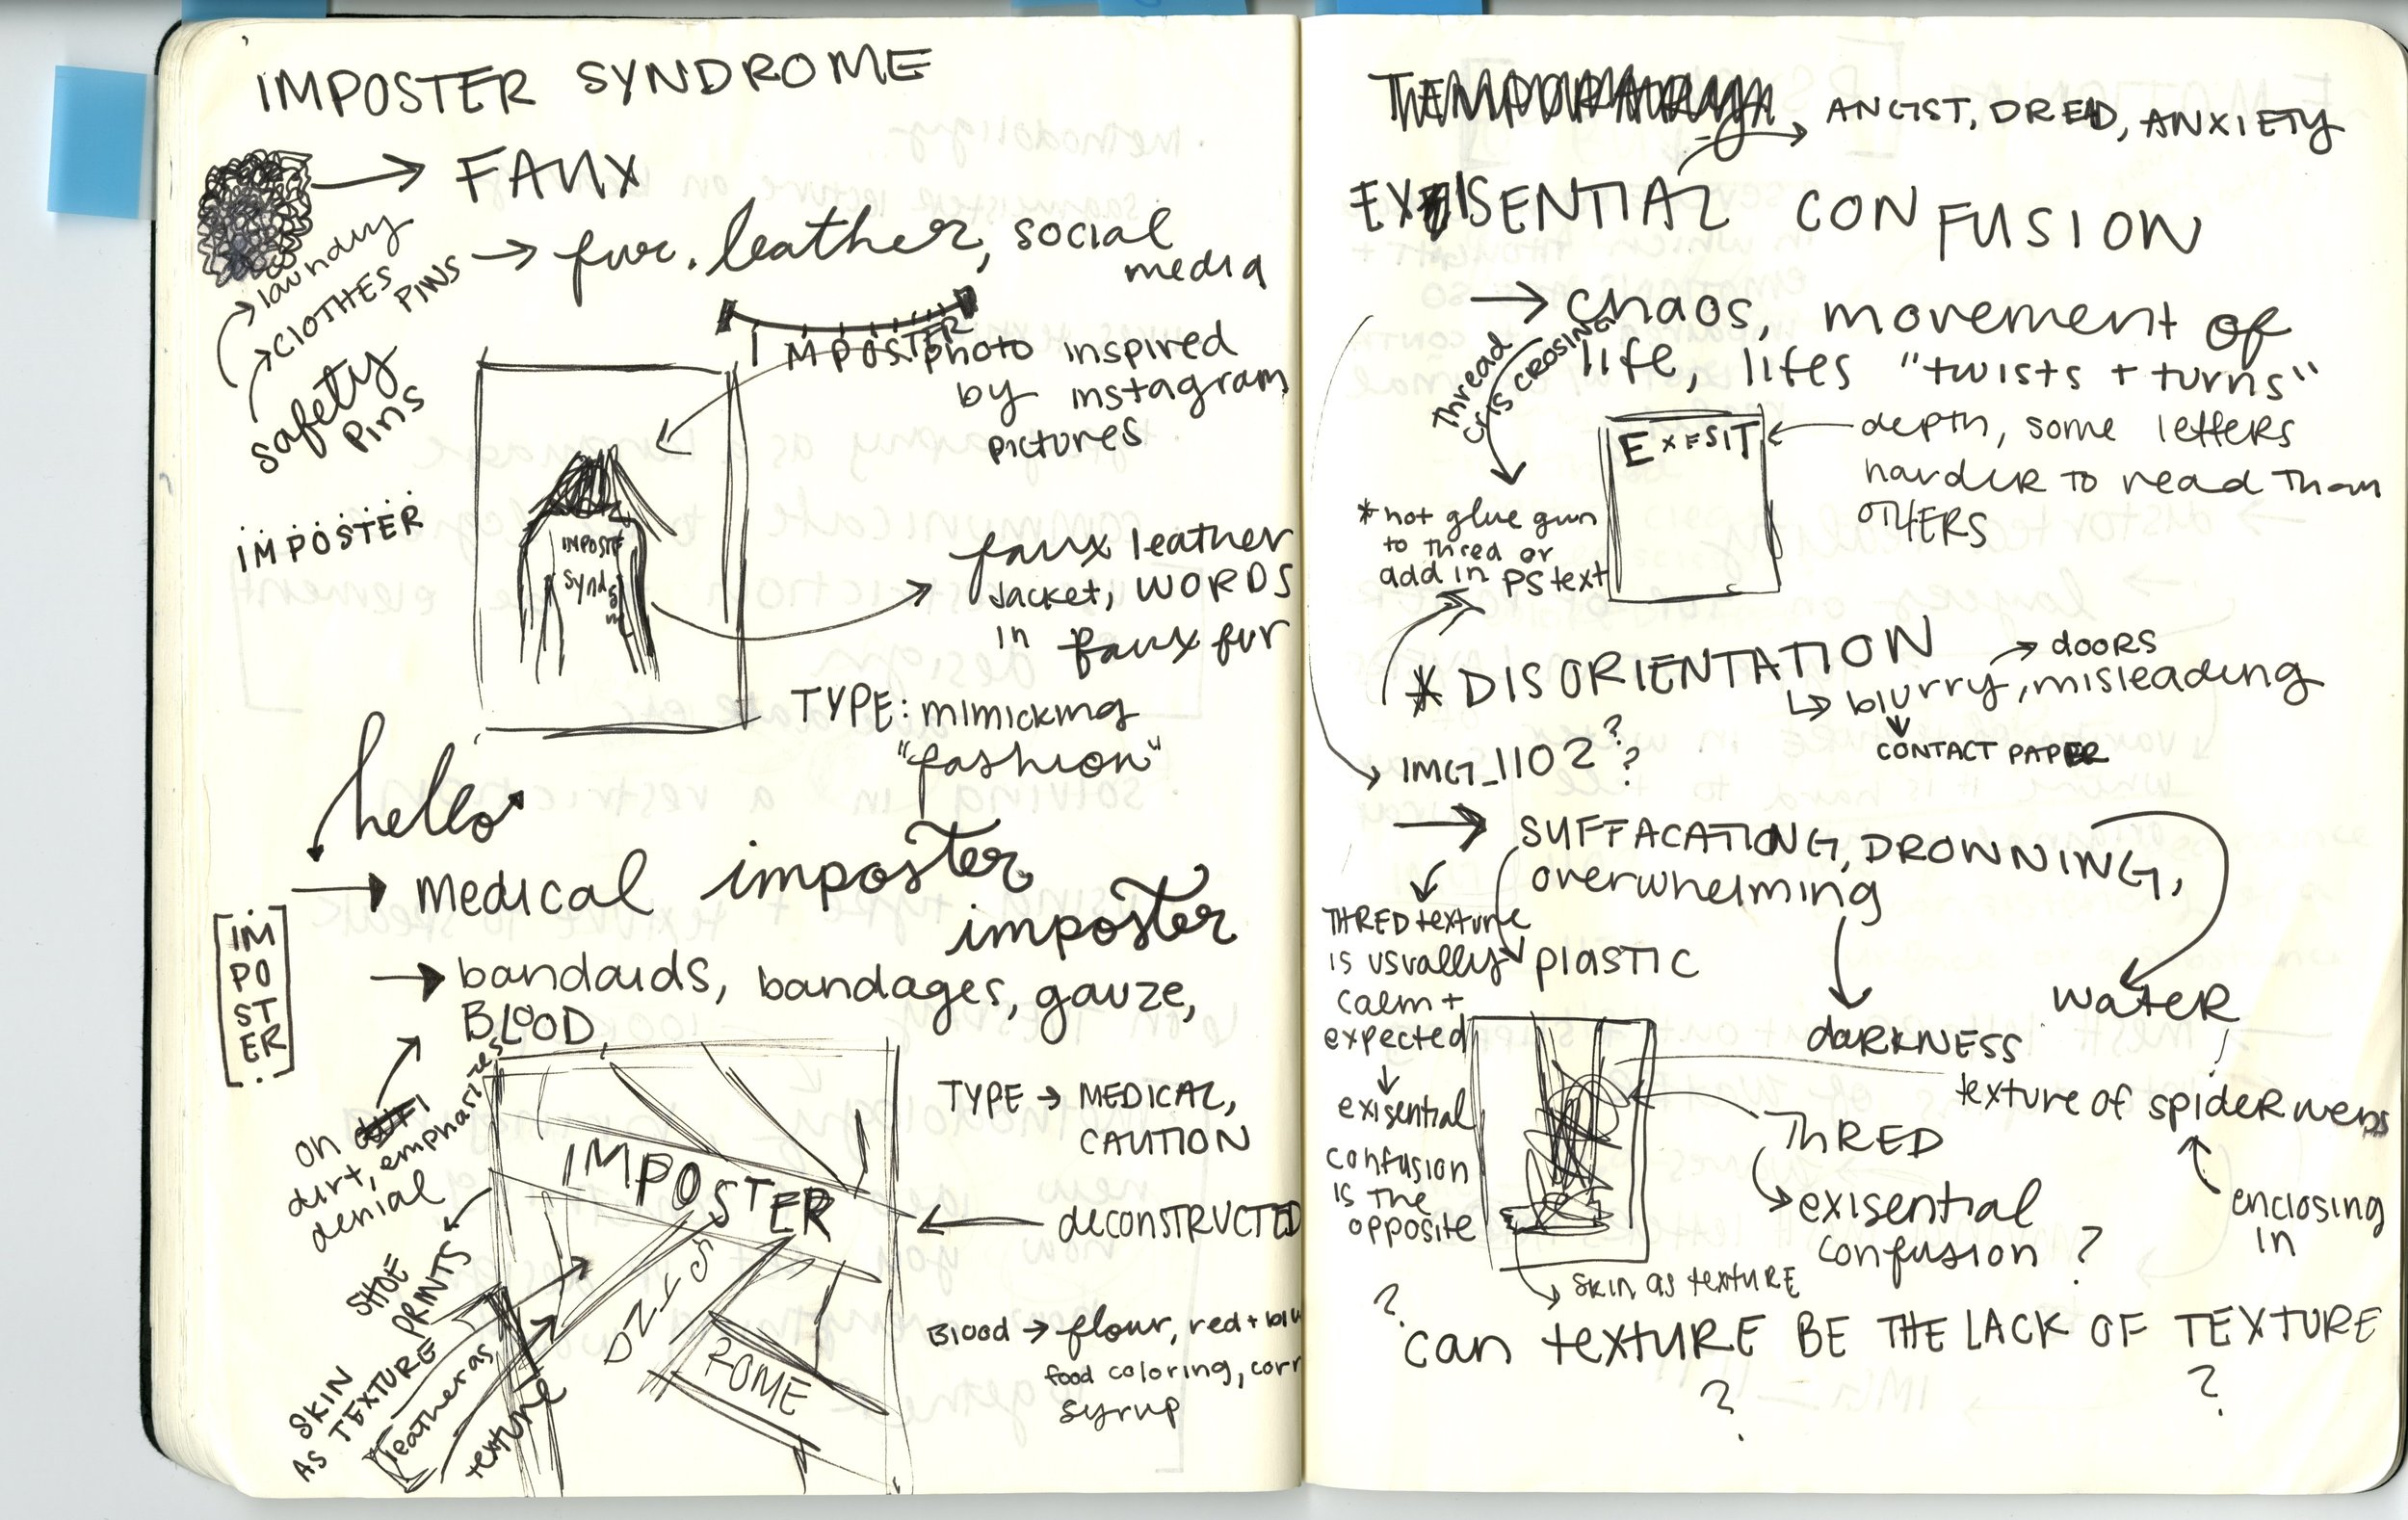 IMPOSTER SYNDROME
→ FAUX
→ fur, leather, social
media
laundry
CLOTHES PINS
safety
Pins
IMPOSTER
IMPOSTER
photo inspired
by instagram
pictures
IMPOSTE
Synd
faux leather
Jacket, WORDS
in faux fur
TYPE: mimicking
"fashion"
hello
→ Medical imposter
imposter
IM
PO
ST
ER
→ bandaids, bandages, gauze,
BLOOD
on
dirt, emphasizes
denial
SHOE
PRINTS
SKIN
AS TEXTURE
leather as
texture
IMPOSTER
SYND
ROME
TYPE → MEDICAL,
CAUTION
deconstructed
Blood → flour, red + blu
food coloring, corn
syrup
TEMPORARY
→ ANGST, DREAD, ANXIETY
EXISENTIAL CONFUSION
→ chaos, movement of
life, lifes "twists + turns"
Thread
cris crosing
EXESIT
depth, some letters
harder to read Than
OTHERS
*hot glue gun
to thred or
add in PS text
* DISORIENTATION
→ doors
↳ blurry, misleading
CONTACT PAPER
→ IMG_1102??
→ SUFFACATING, DROWNING,
overwhelming
THRED texture
is usually
calm +
expected
↓
exisential
confusion
is the
opposite
plastic
darkness
water
texture of spider webs
enclosing
in
THRED
exisential
confusion ?
skin as texture
? can texture BE THE LACK OF TEXTURE
? ?